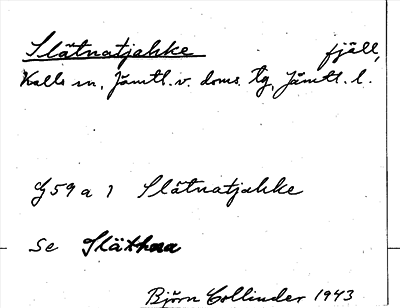 Slätnatjahke fjäll,
Kalls sn, Jämtl. v. doms. tg, Jämtl. l.
G59 a 1 Slätnatjahke
Se
Björn Collinder 1943